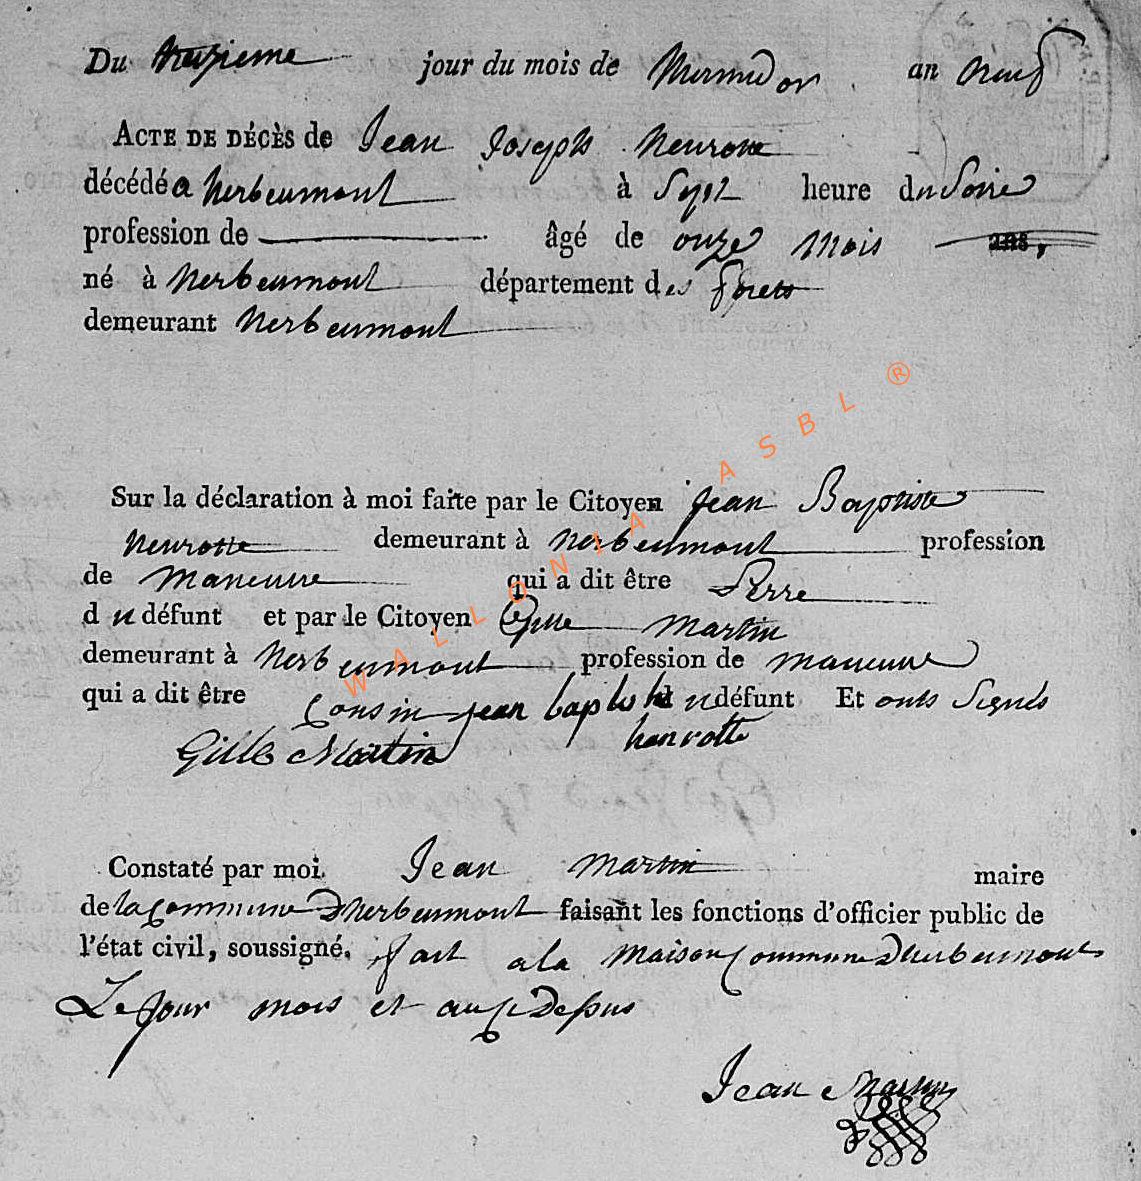 Du jour du mois de an neuf
ACTE DE DÉCÈS de Jean Joseph
décédé a herbeumont à Sept heure du Soire
profession de âgé de onze Mois ans,
né à herbeumont département des forets
demeurant herbeumont
Sur la déclaration à moi faite par le Citoyen Jean Baptiste
demeurant à herbeumont profession
de qui a dit être Perre
du défunt et par le Citoyen Martin
demeurant à herbeumont profession de
qui a dit être Cousin du défunt Et onts Signés
jean baptist
henrotte
Gille Martin
Constaté par moi Jean Martin maire
de la Commune Dherbeumont faisant les fonctions d'officier public de
l'état civil, soussigné. fait a la Maison Commune Dherbeumont
Le Jour mois et
Jean Martin
WALLONIA ASBL ®